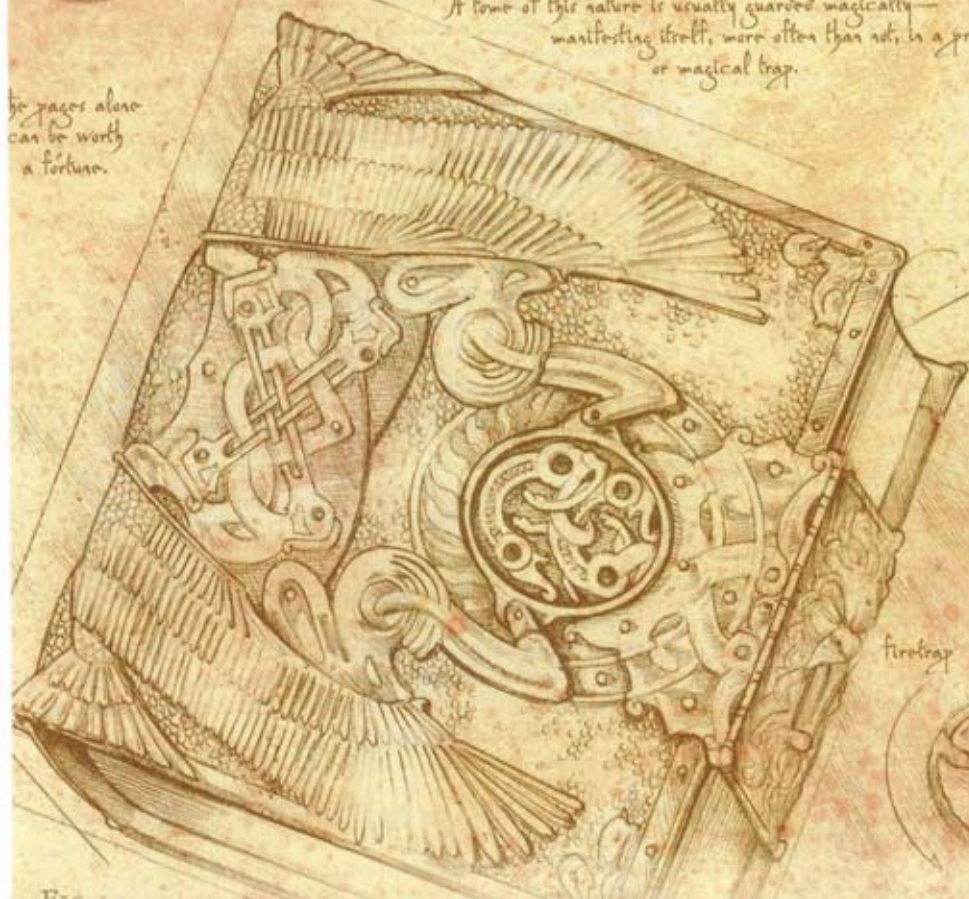 A tome of this nature is usually guarded magically—
manifesting itself, more often than not, in a
or magical trap.
he pages alone
can be worth
a fortune.
firetrap